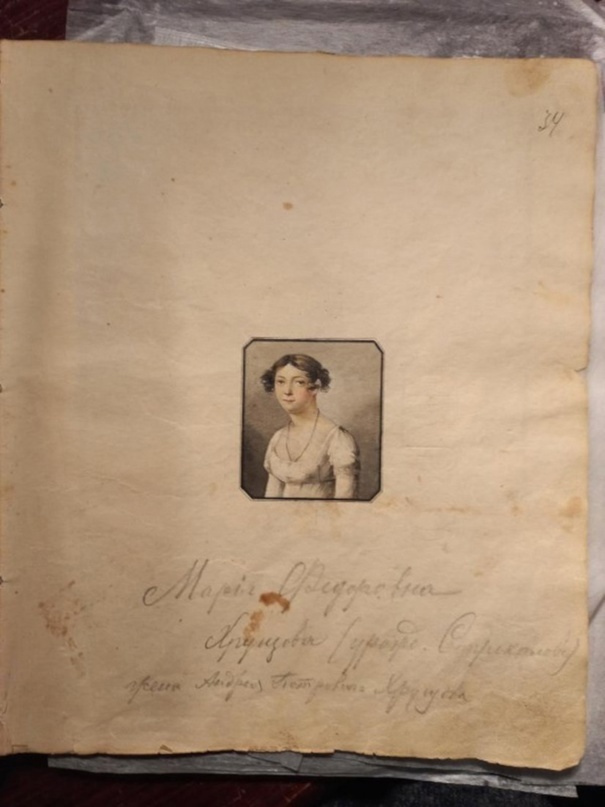 34
Марія Ѳедоровна
Хрущова (урожд.
жена Андрея Петровича Хрущова